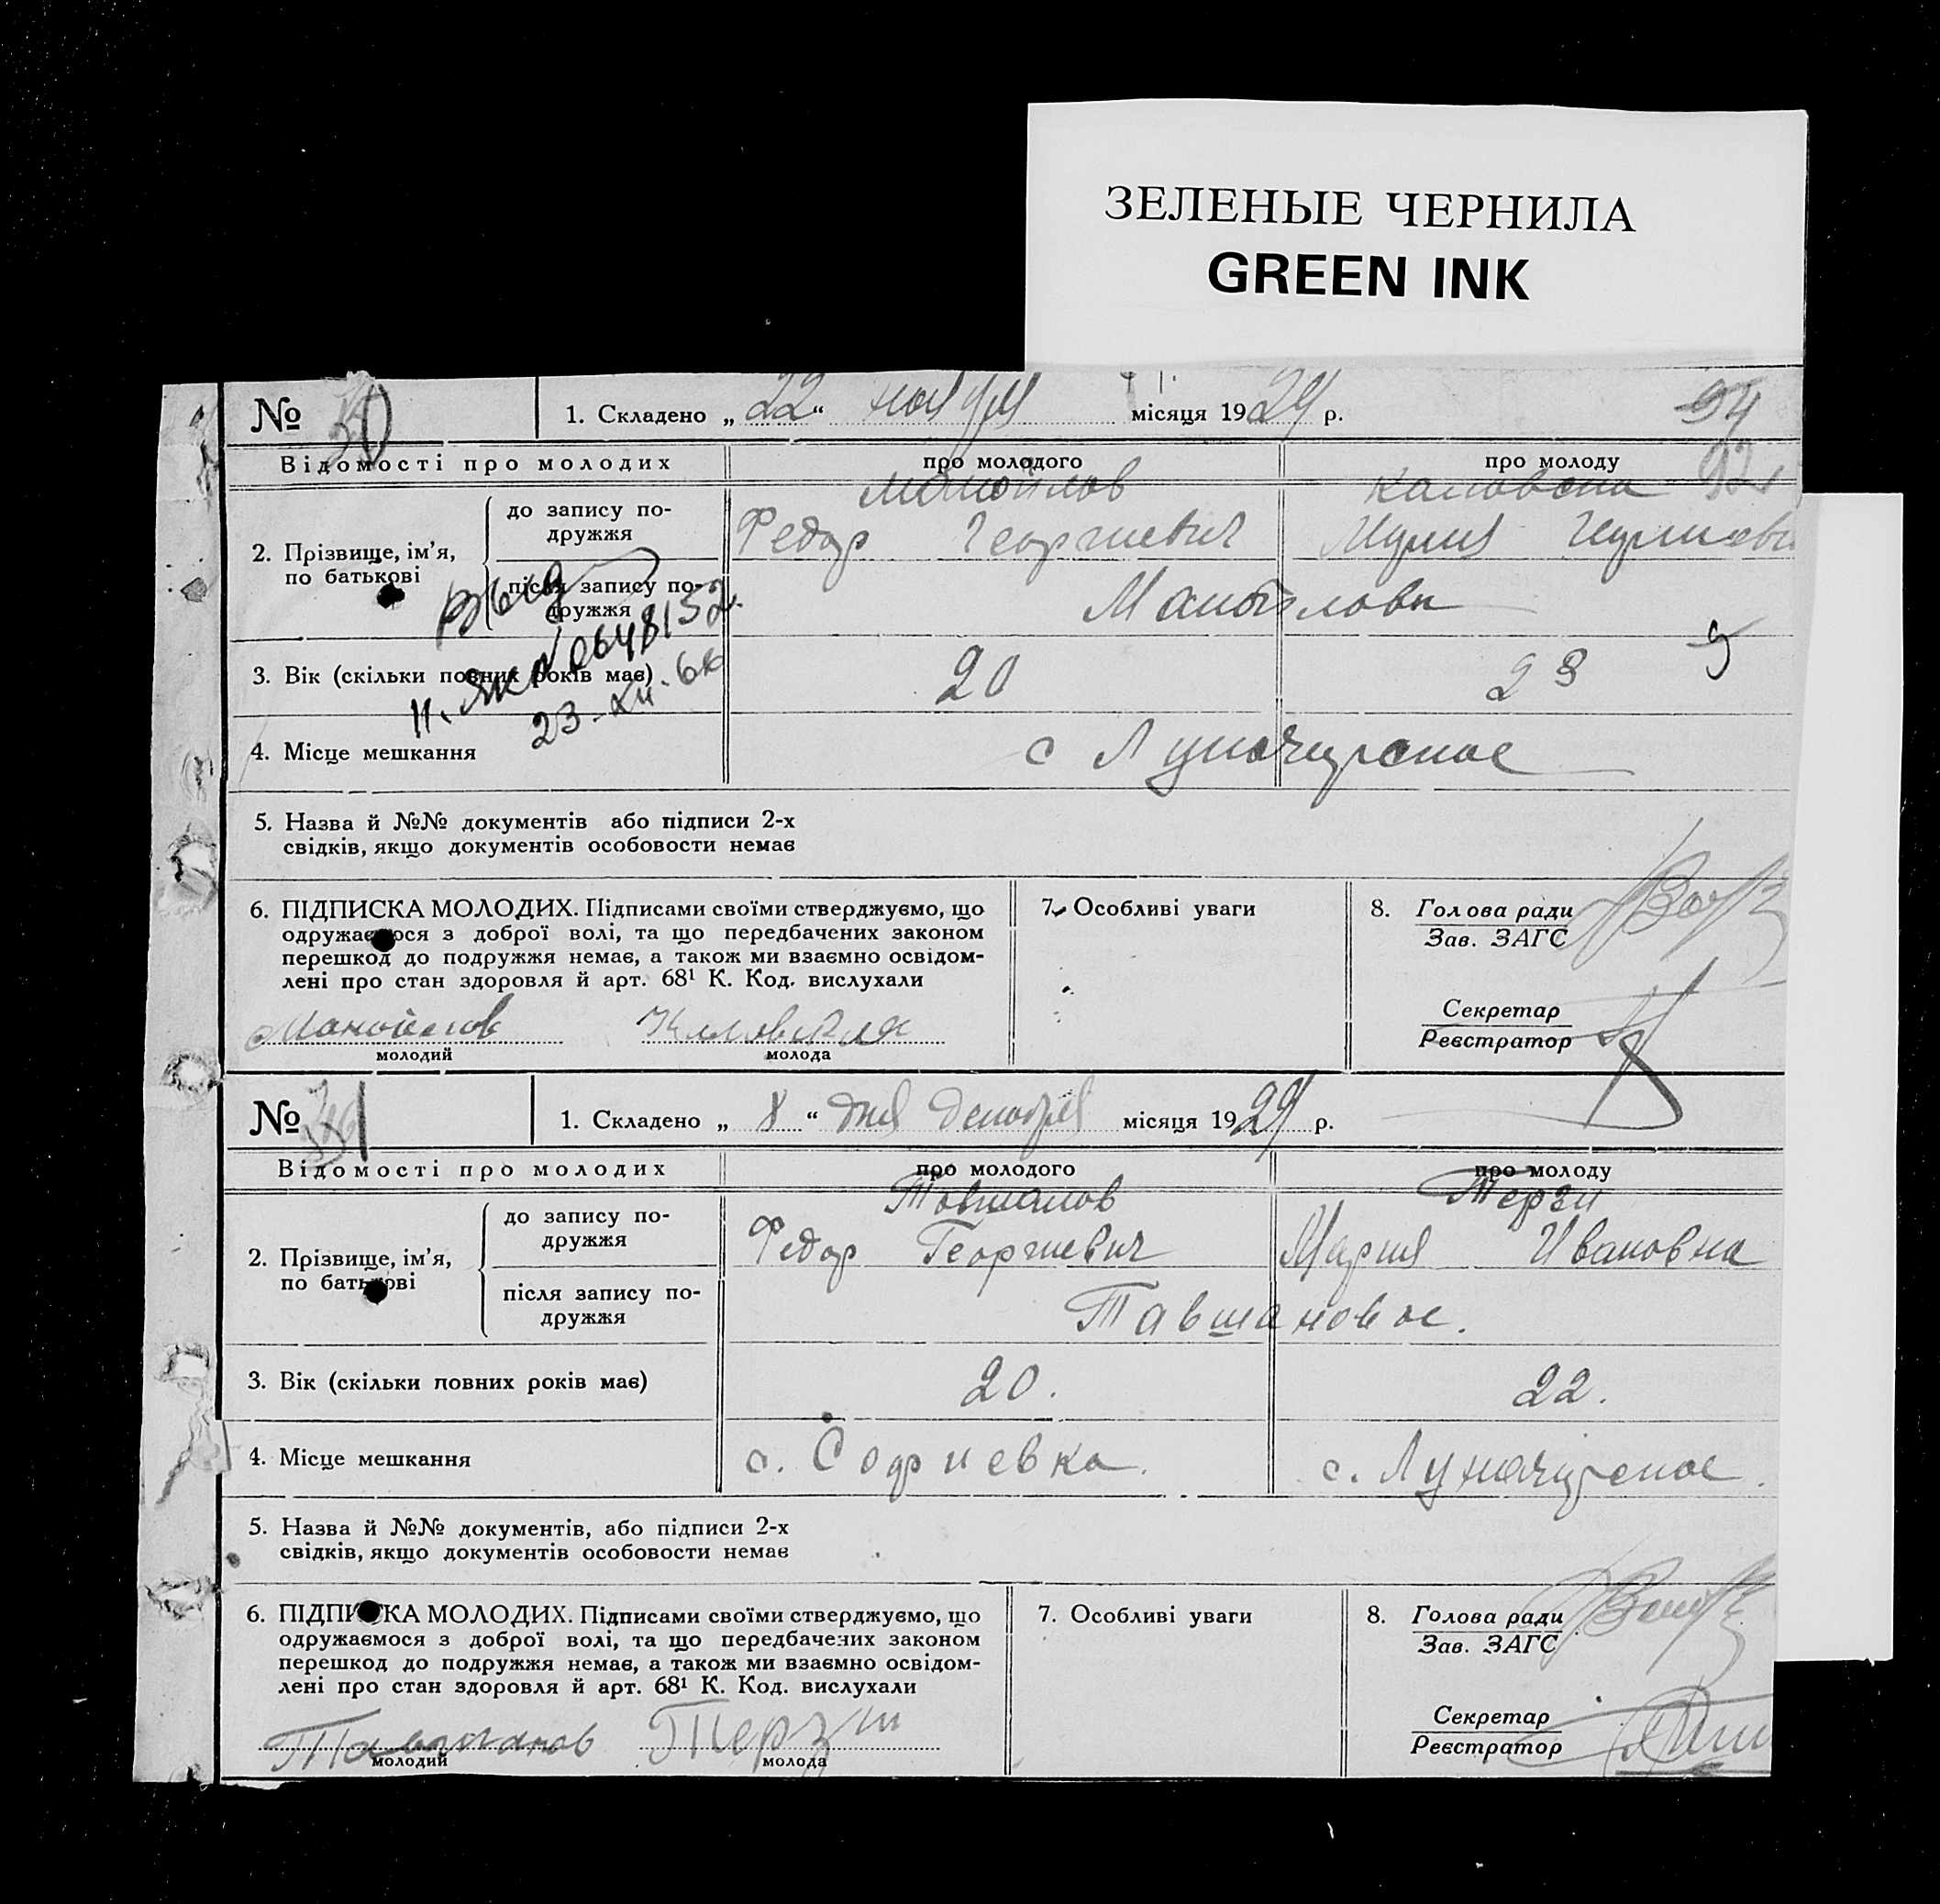 ЗЕЛЕНЫЕ ЧЕРНИЛА
GREEN INK
№ 30 1. Складено „22“ ноября місяця 1929 р. 94
92
Відомості про молодих про молодого про молоду
Манойлов
2. Прізвище, ім’я, по батькові
до запису по-
дружжя
Федор Георгиевич Мария
після запису по-
дружжя
Манойловы
Выд
н. ЯК № 0648152
3. Вік (скільки повних років має) 20 23
23-XII-6
4. Місце мешкання с Луначарское
5. Назва й №№ документів або підписи 2-х
свідків, якщо документів особовости немає
6. ПІДПИСКА МОЛОДИХ. Підписами своїми стверджуємо, що
одружаємося з доброї волі, та що передбачених законом
перешкод до подружжя немає, а також ми взаємно освідом-
лені про стан здоровля й арт. 68¹ К. Код. вислухали
Манойлов
молодий молода
7. Особливі уваги
8. Голова ради
Зав. ЗАГС
Секретар
Реєстратор
№ 31 1. Складено „8“ дня Декабря місяця 1929 р.
Відомості про молодих про молодого про молоду
Товшанов Терзи
2. Прізвище, ім’я, по батькові
до запису по-
дружжя
Федор Георгиевич Мария Ивановна
після запису по-
дружжя
Тавшановы.
3. Вік (скільки повних років має) 20. 22.
4. Місце мешкання с. Софиевка. с. Луначарское.
5. Назва й №№ документів, або підписи 2-х
свідків, якщо документів особовости немає
6. ПІДПИСКА МОЛОДИХ. Підписами своїми стверджуємо, що
одружаємося з доброї волі, та що передбачених законом
перешкод до подружжя немає, а також ми взаємно освідом-
лені про стан здоровля й арт. 68¹ К. Код. вислухали
Тавшанов Терзи
молодий молода
7. Особливі уваги
8. Голова ради
Зав. ЗАГС
Секретар
Реєстратор